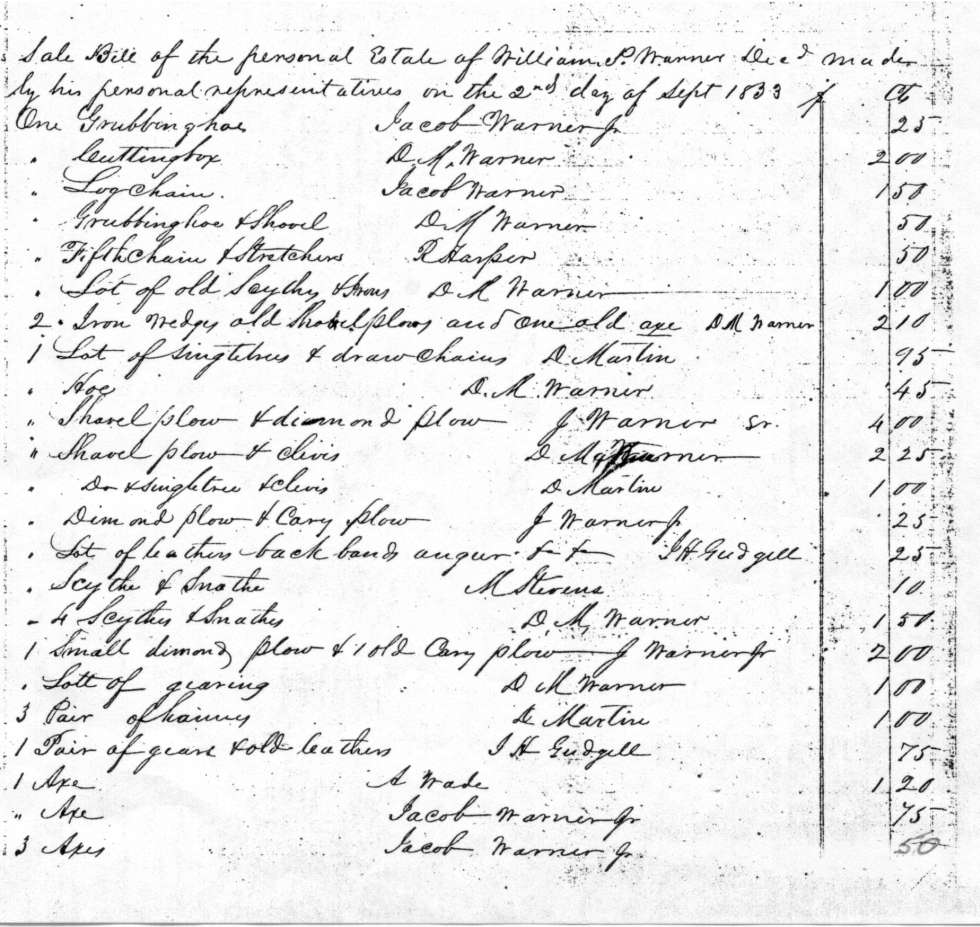 Sale Bill of the personal Estate of William P. Warner Decd made
by his personal representatives on the 2nd day of Sept 1833 $ Cts
One Grubbinghoe Jacob Warner Jr 25
" Cuttingbox D. M. Warner 2 00
" Logchain. Jacob Warner 1 50
" Grubbinghoe & Shovel D M Warner 50
" Fifthchain & Stretchers R Harper 50
" Lot of old Scythes & Irons D M Warner 1 00
2 " Iron wedges old Shovel plows and one old axe D M Warner 2 10
1 Lot of singletrees & drawchains D Martin 95
" Hoe D. M. Warner 45
" Shavel plow & dimond plow J Warner Sr. 4 00
" Shavel plow & clivis D M Warner 2 25
" Do & singletree & clevis D Martin 1 00
" Dimond plow & Cary plow J Warner Jr 25
" Lot of leathers back bands auger &c &c J H Gudgell 25
" Scythe & Snathe M Stevens 10
" 4 Scythes & Snathes D. M. Warner 1 50
1 Small dimond plow & 1 old Cary plow J Warner Jr 2 00
" Lott of gearing D M Warner 1 00
3 Pair of haimes D Martin 1 00
1 Pair of gears & old leathers J H Gudgell 75
1 Axe A Wade 1 20
" Axe Jacob Warner Jr 75
3 Axes Jacob Warner Jr 50